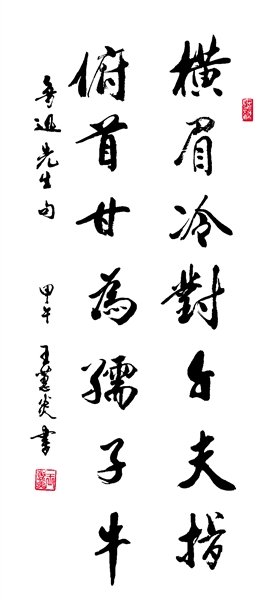 橫眉冷對千夫指
俯首甘為孺子牛
魯迅先生句 甲午 王蕙炎書